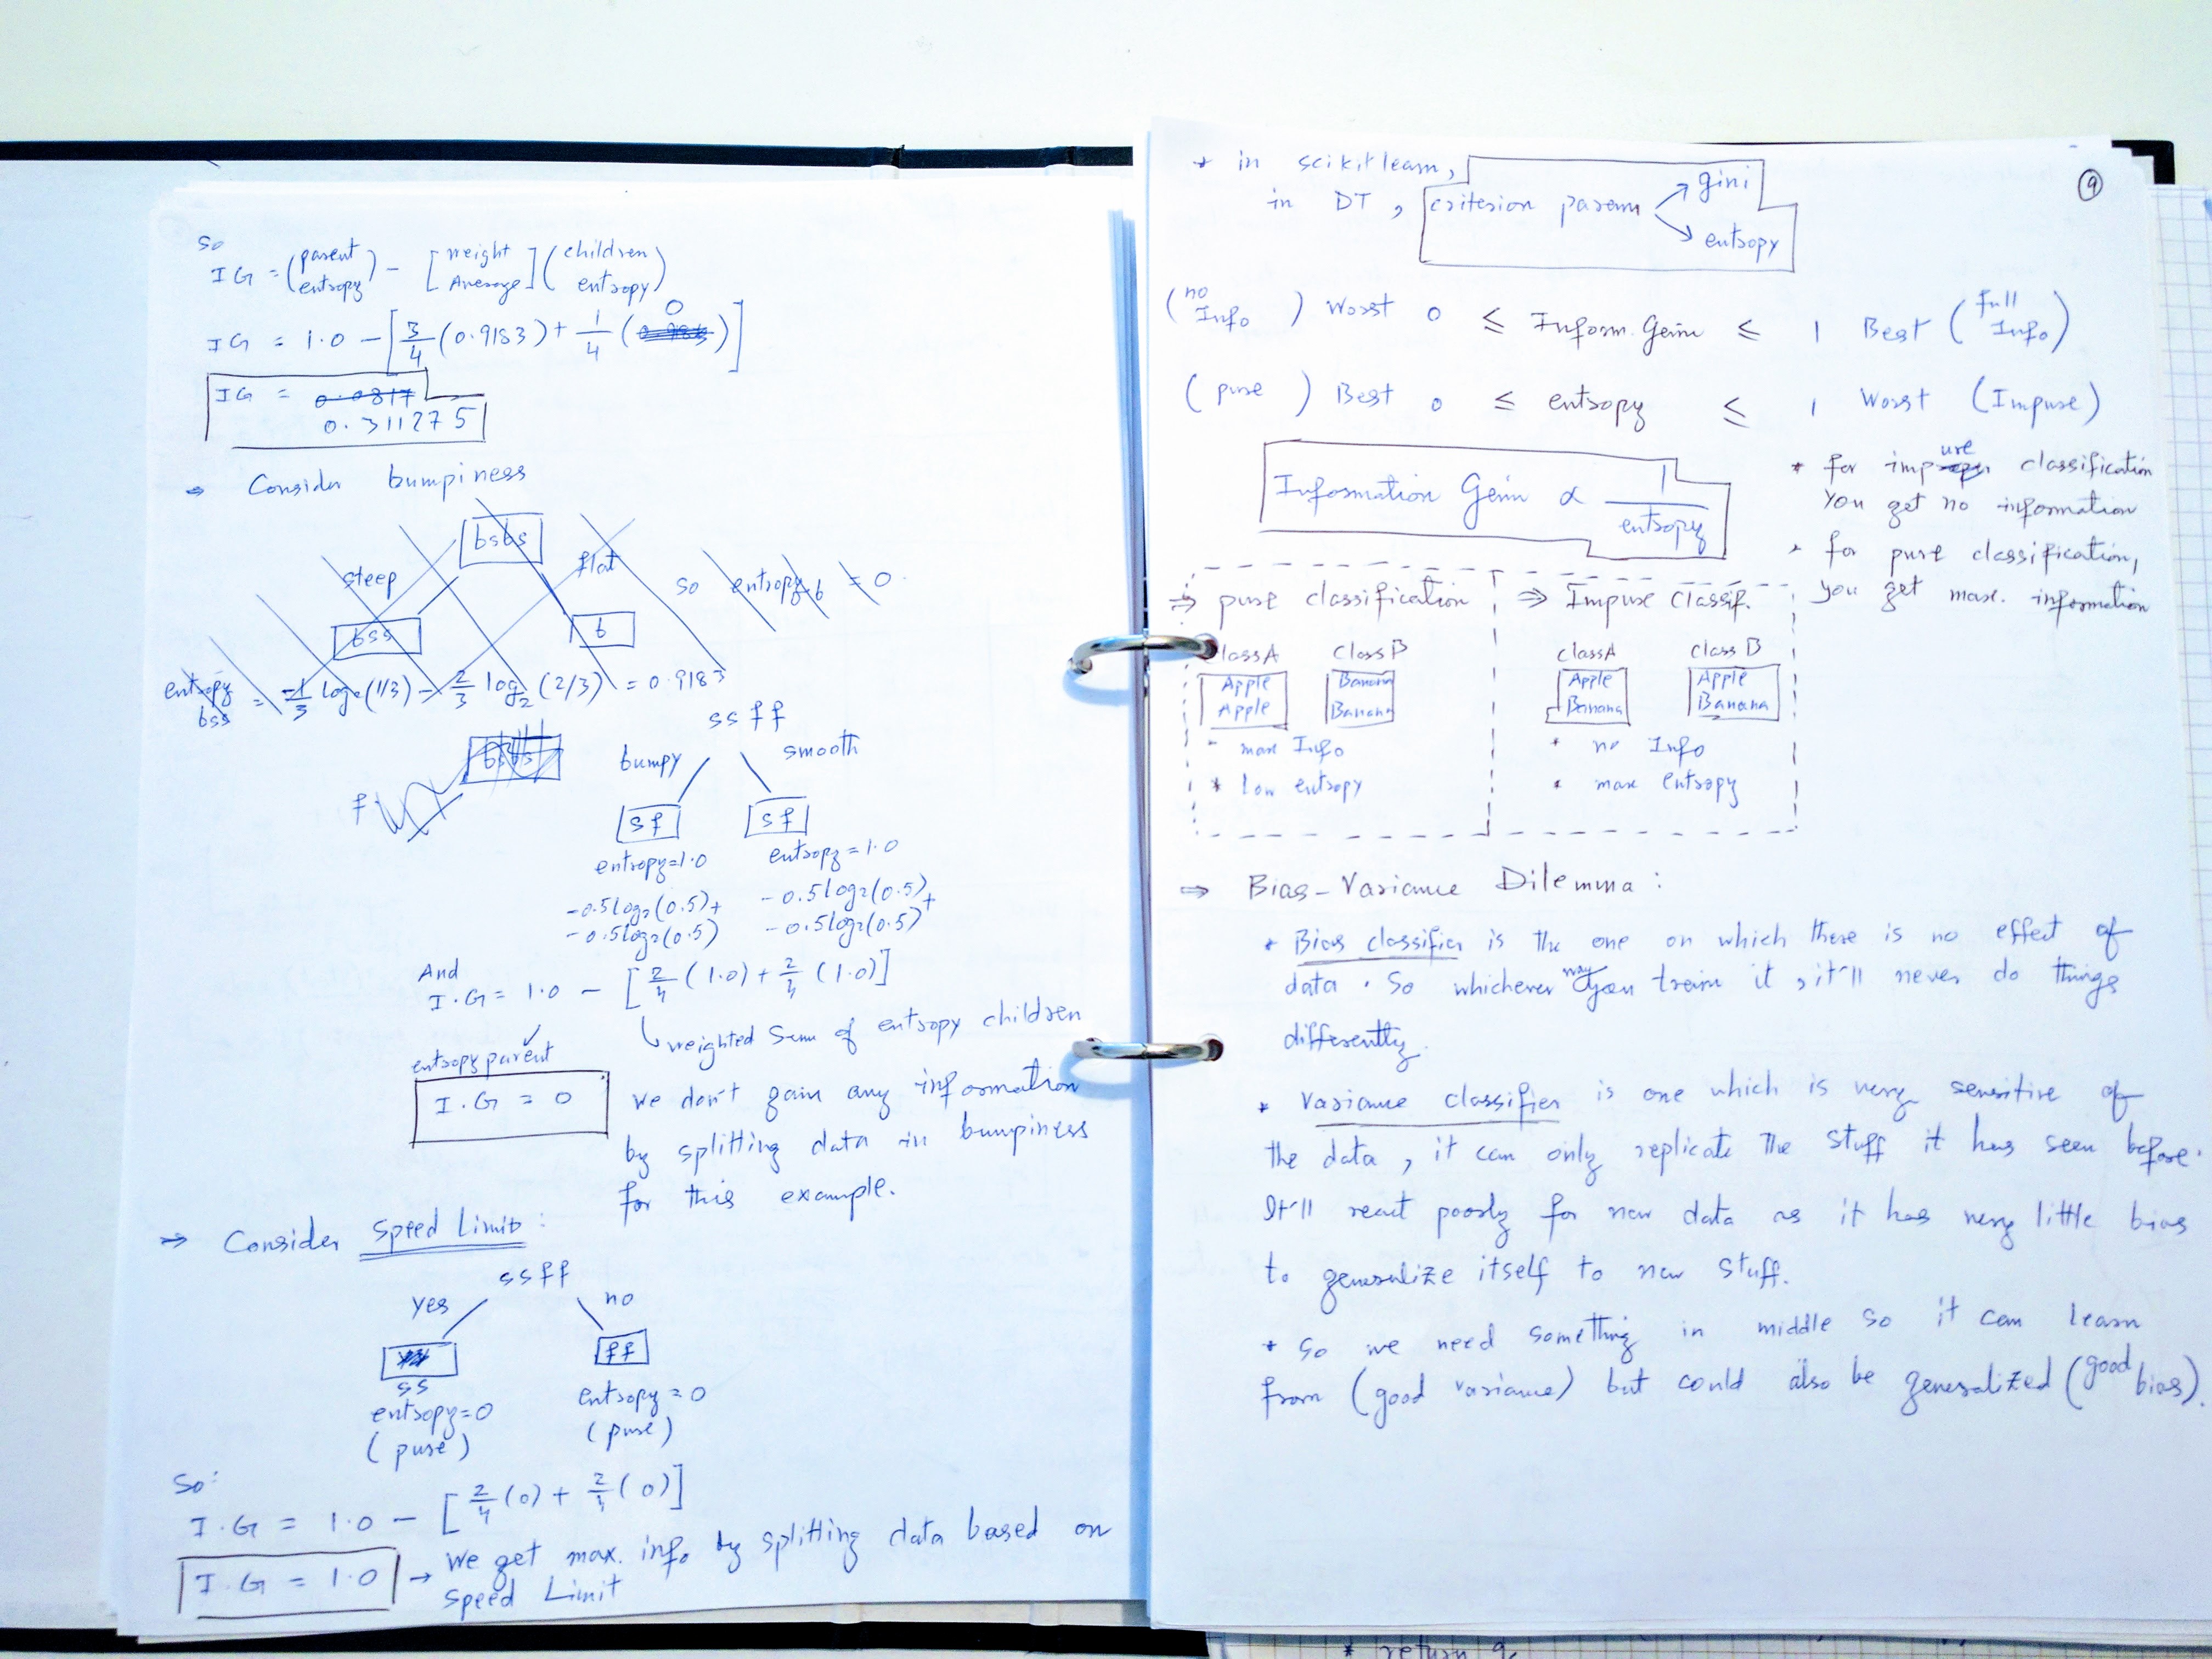 So
IG = (parent entropy) - [weight Average] (children entropy)
IG = 1.0 - [3/4 (0.9183) + 1/4 (0)]
IG = 0.0817
0.311275
→ Consider bumpiness
bsbs
steep flat
bss b so entropy b = 0
entropy bss = -1/3 log2(1/3) - 2/3 log2(2/3) = 0.9183
ssff
bumpy smooth
sf sf
entropy=1.0 entropy=1.0
-0.5log2(0.5)+ -0.5log2(0.5)+
-0.5log2(0.5) -0.5log2(0.5)
And
I.G = 1.0 - [2/4 (1.0) + 2/4 (1.0)]
weighted Sum of entropy children
entropy parent
I.G = 0
we don't gain any information
by splitting data in bumpiness
for this example.
⇒ Consider Speed Limit :
ssff
yes no
ss ff
entropy=0 entropy=0
(pure) (pure)
So:
I.G = 1.0 - [2/4 (0) + 2/4 (0)]
I.G = 1.0 → We get max. info by splitting data based on
Speed Limit
* in scikit learn,
in DT, criterion param
gini
entropy
9
(no Info) Worst 0 ≤ Inform. Gain ≤ 1 Best (full Info)
(pure) Best 0 ≤ entropy ≤ 1 Worst (Impure)
Information Gain ∝ 1/entropy
* for impure classification
you get no information
* for pure classification,
you get max. information
⇒ pure classification
class A class B
Apple Banana
Apple Banana
- max Info
* low entropy
⇒ Impure Classif.
class A class B
Apple Apple
Banana Banana
* no Info
* max entropy
⇒ Bias-Variance Dilemma :
* Bias classifier is the one on which there is no effect of
data. So whichever way you train it, it'll never do things
differently.
* Variance classifier is one which is very sensitive of
the data, it can only replicate the stuff it has seen before.
It'll react poorly for new data as it has very little bias
to generalize itself to new stuff.
* So we need something in middle so it can learn
from (good variance) but could also be generalized (good bias).
* return